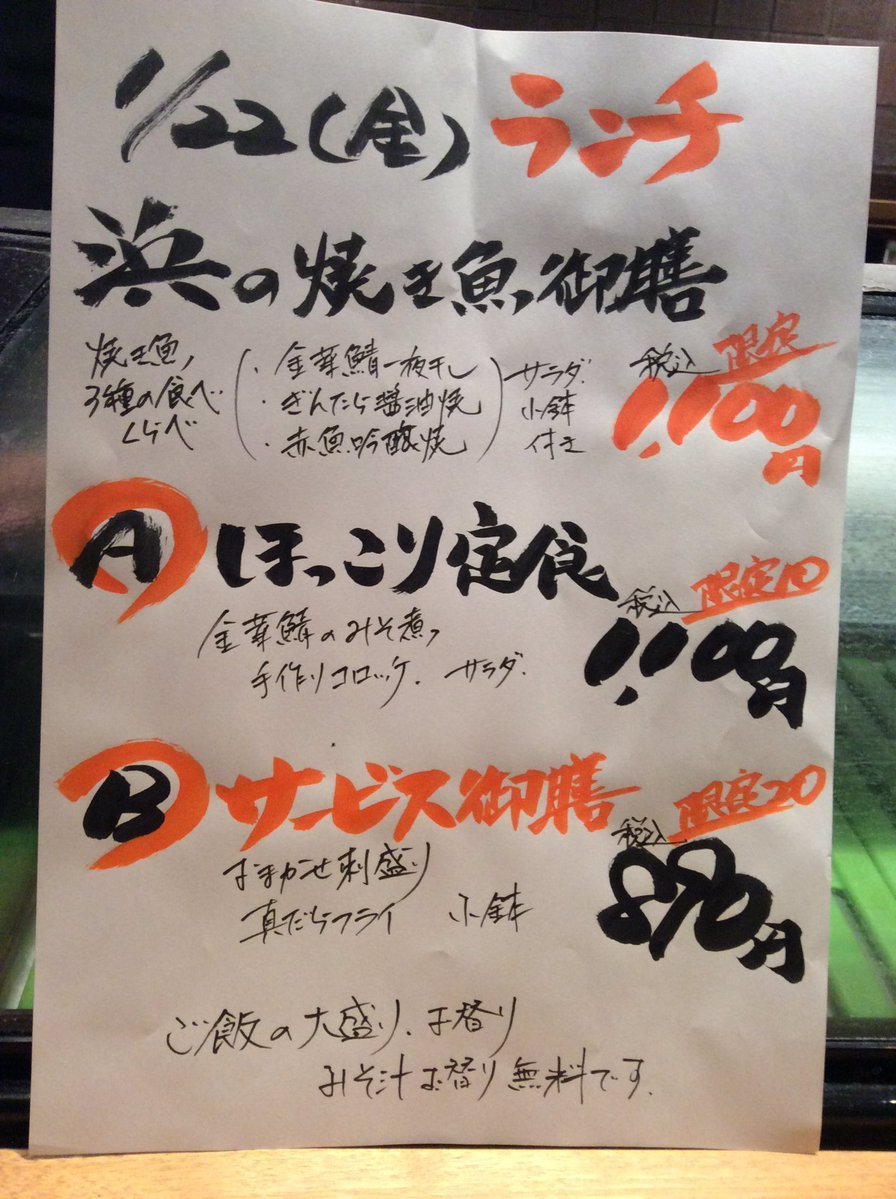 1/22(金)ランチ
浜の焼き魚御膳
焼き魚
3種の食べ
くらべ
・金華鯖一夜干し
・ぎんだら醤油焼
・赤魚吟醸焼
サラダ
小鉢
付き
限定
税込
1,100円
A ほっこり定食
金華鯖のみそ煮
手作りコロッケ、サラダ
限定10
税込
1,100円
B サービス御膳
おまかせ刺盛り
真だらフライ 小鉢
限定20
税込
890円
ご飯の大盛り、お替り
みそ汁お替り無料です。